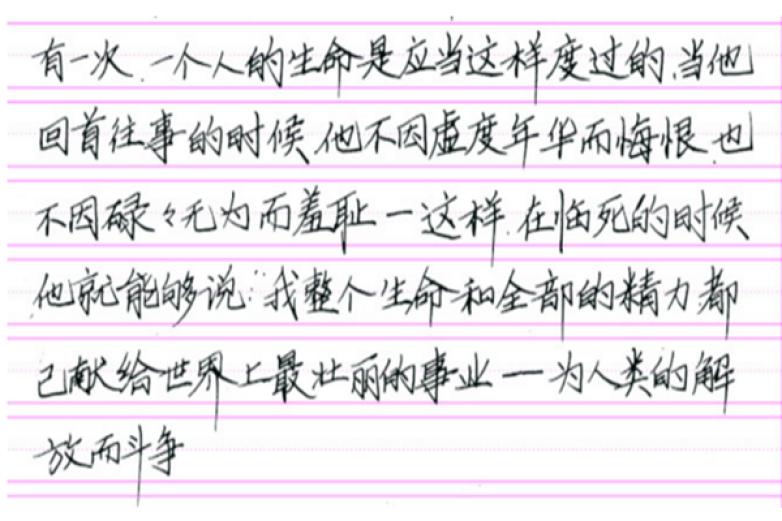 有一次.一个人的生命是应当这样度过的.当他
回首往事的时候.他不因虚度年华而悔恨.也
不因碌々无为而羞耻一这样.在临死的时候
他就能够说:"我整个生命和全部的精力都
已献给世界上最壮丽的事业一为人类的解
放而斗争